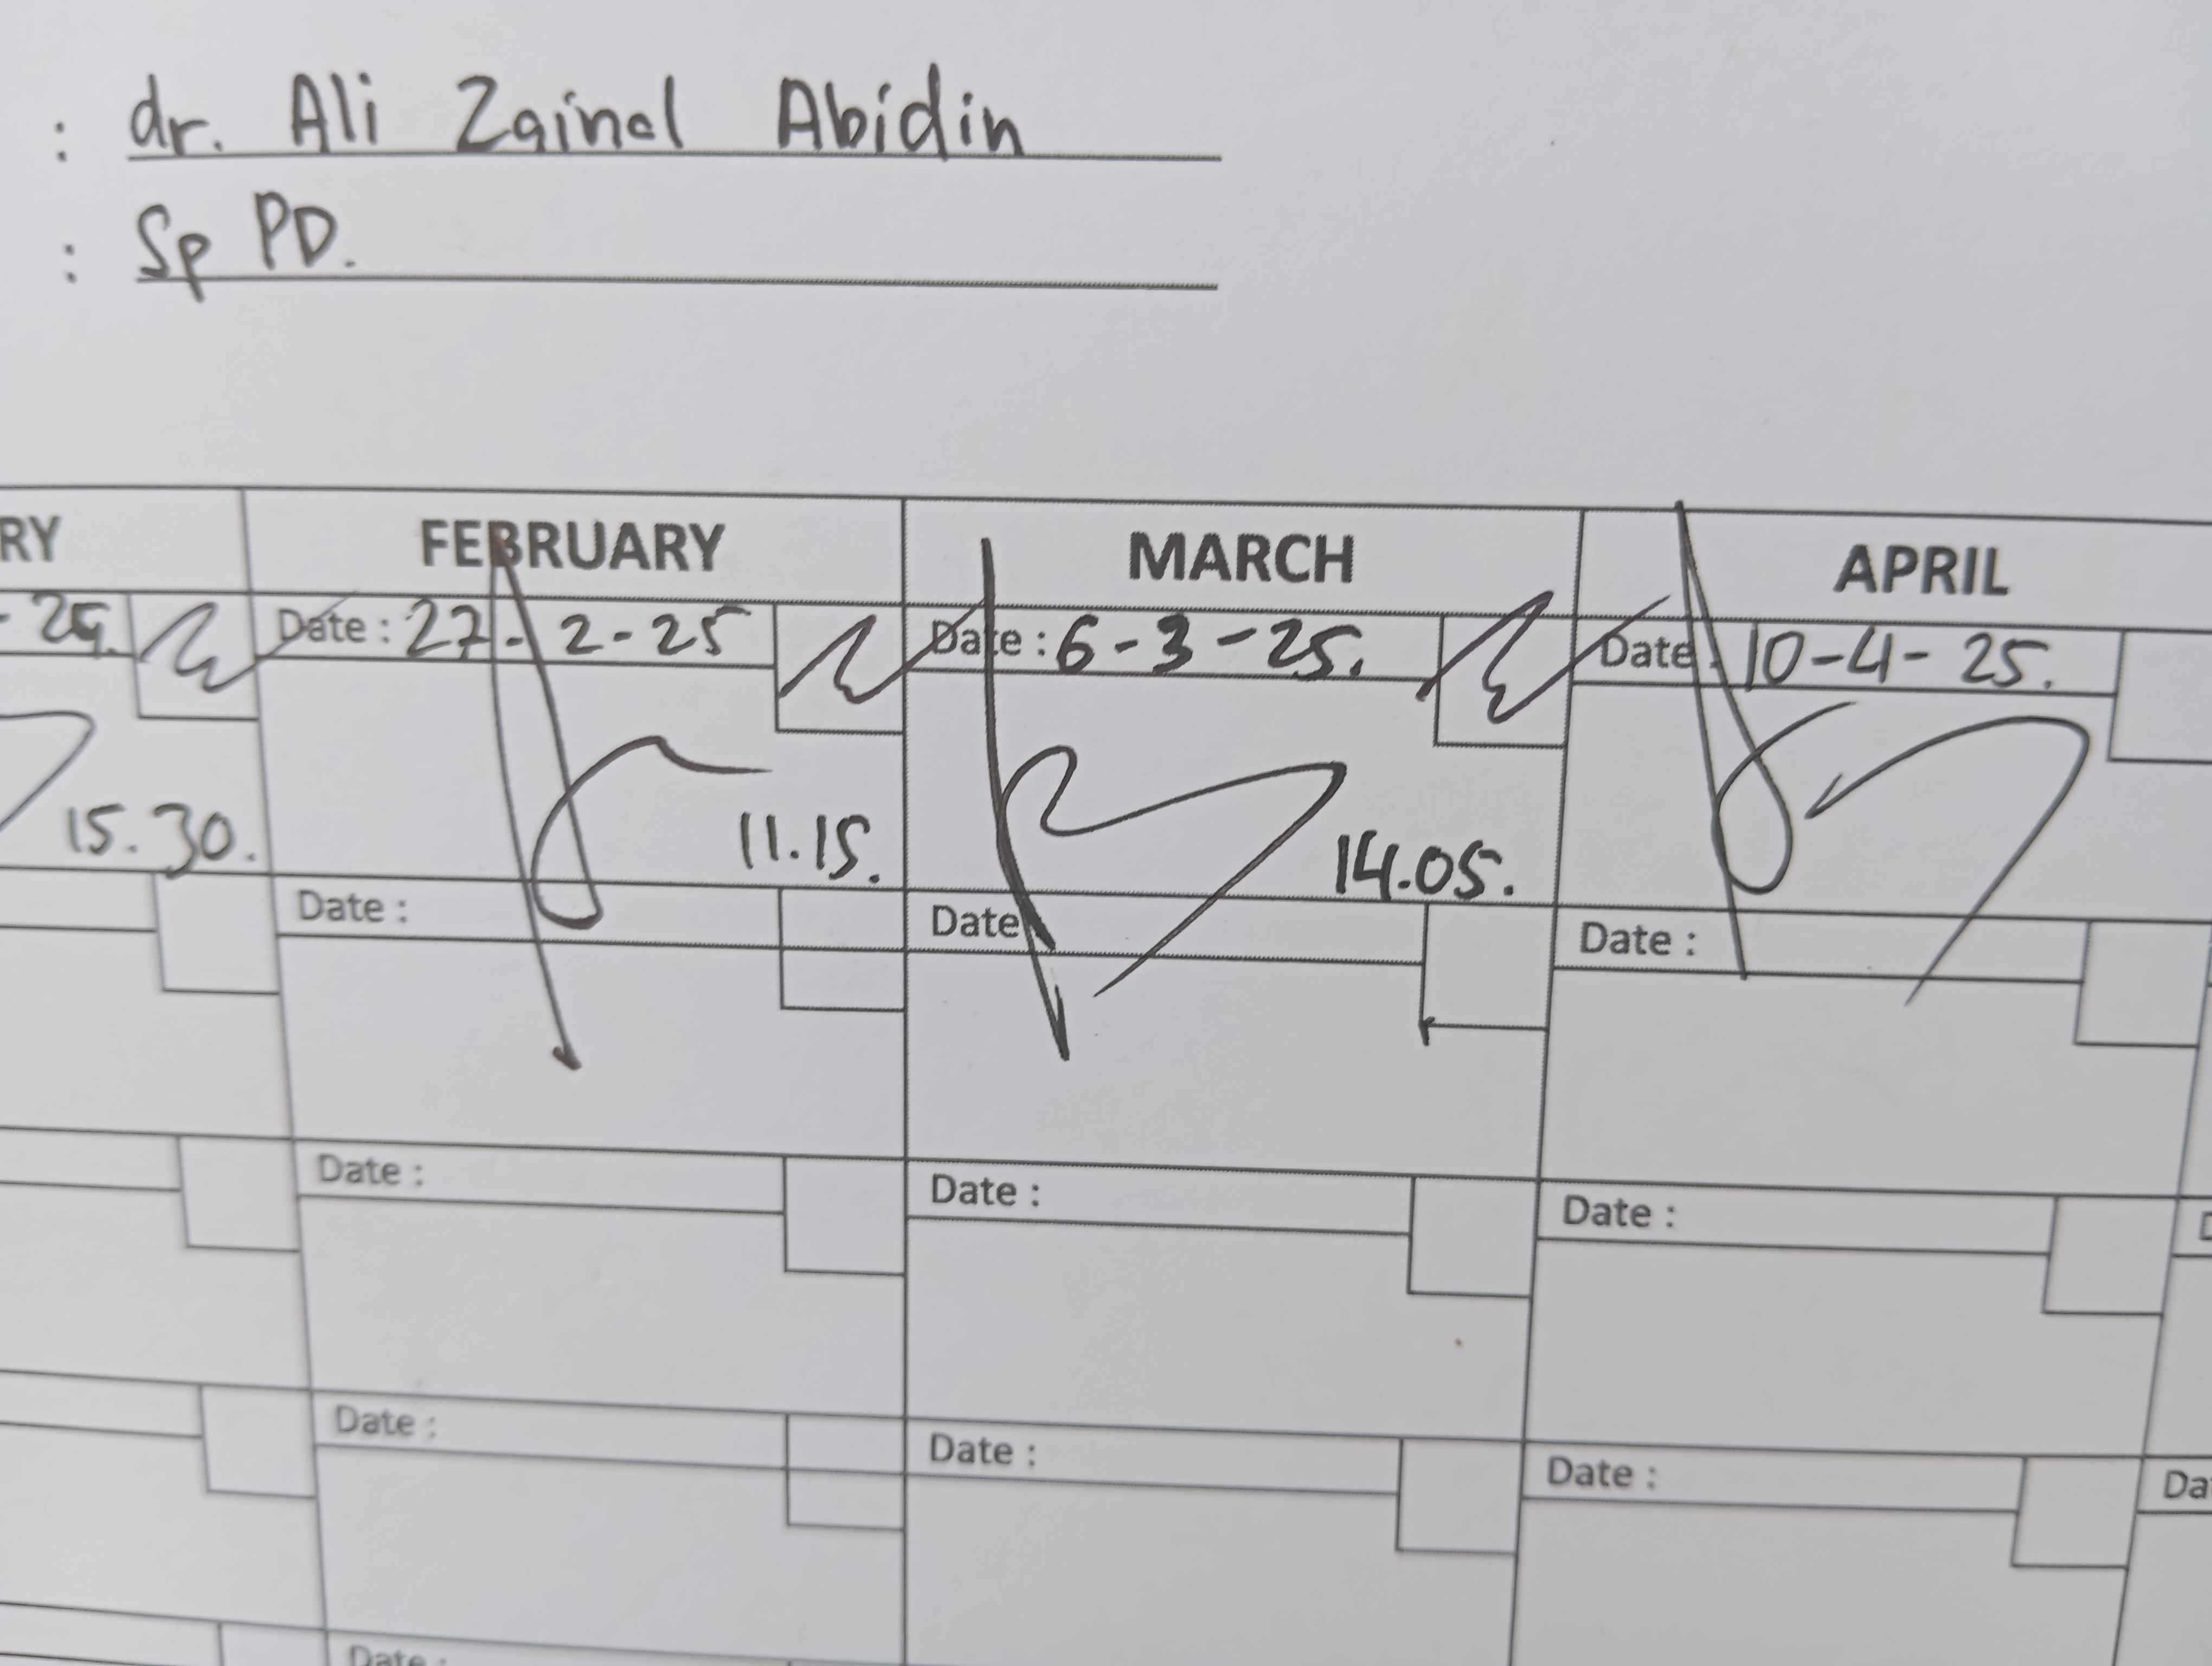 : dr. Ali Zainal Abidin
: Sp PD.
RY FEBRUARY MARCH APRIL
- 25. Date : 27 - 2 - 25 Date : 6 - 3 - 25. Date : 10 - 4 - 25.
15.30. 11.15. 14.05.
Date : Date Date :
Date : Date : Date :
Date : Date : Date : Da
Date :